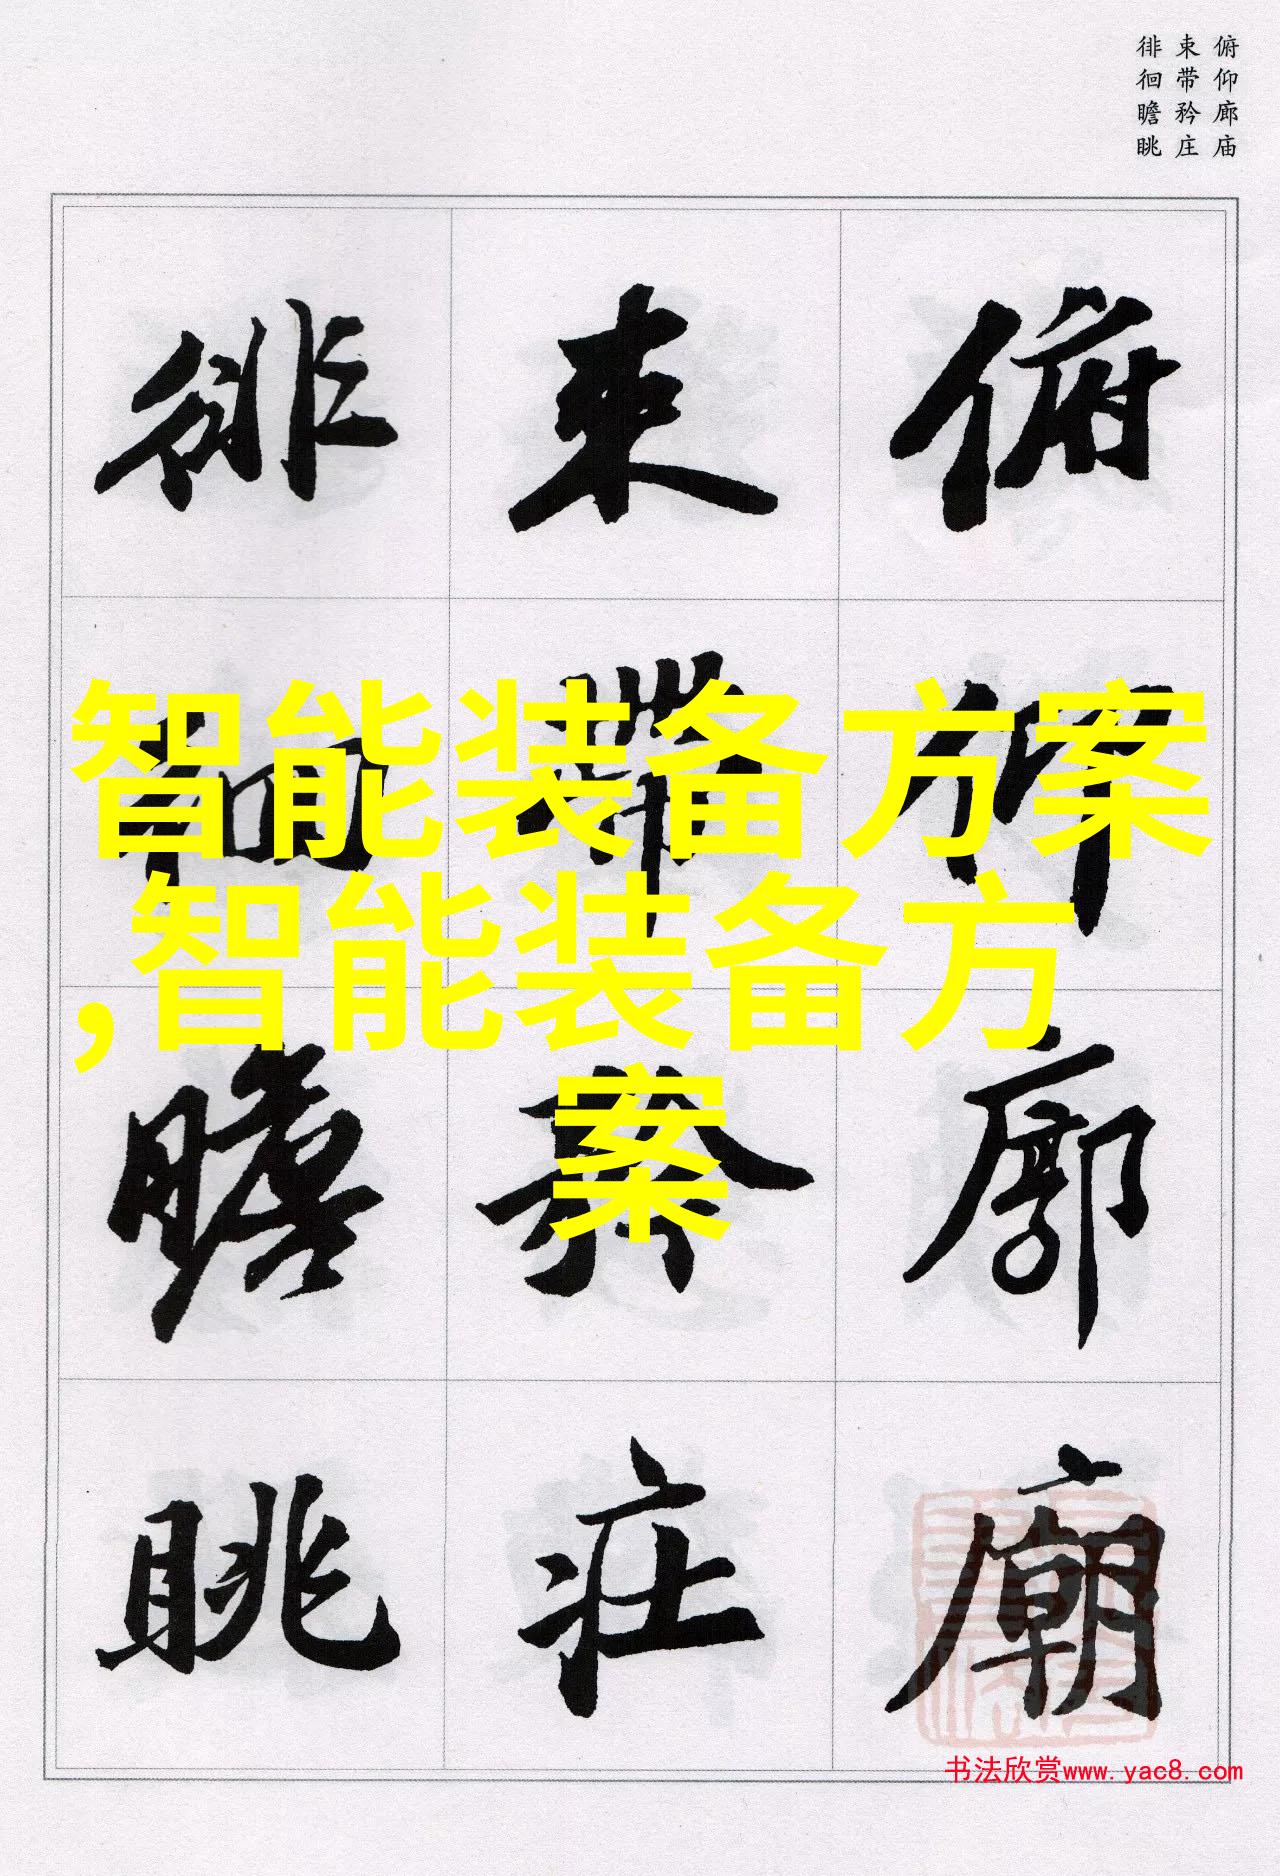 俯仰廊庙
束带矜庄
徘徊瞻眺
俯仰廊廟
束帶矜莊
徘徊瞻眺
智能装备方案
,智能装备方
案
书法欣赏www.yac8.com